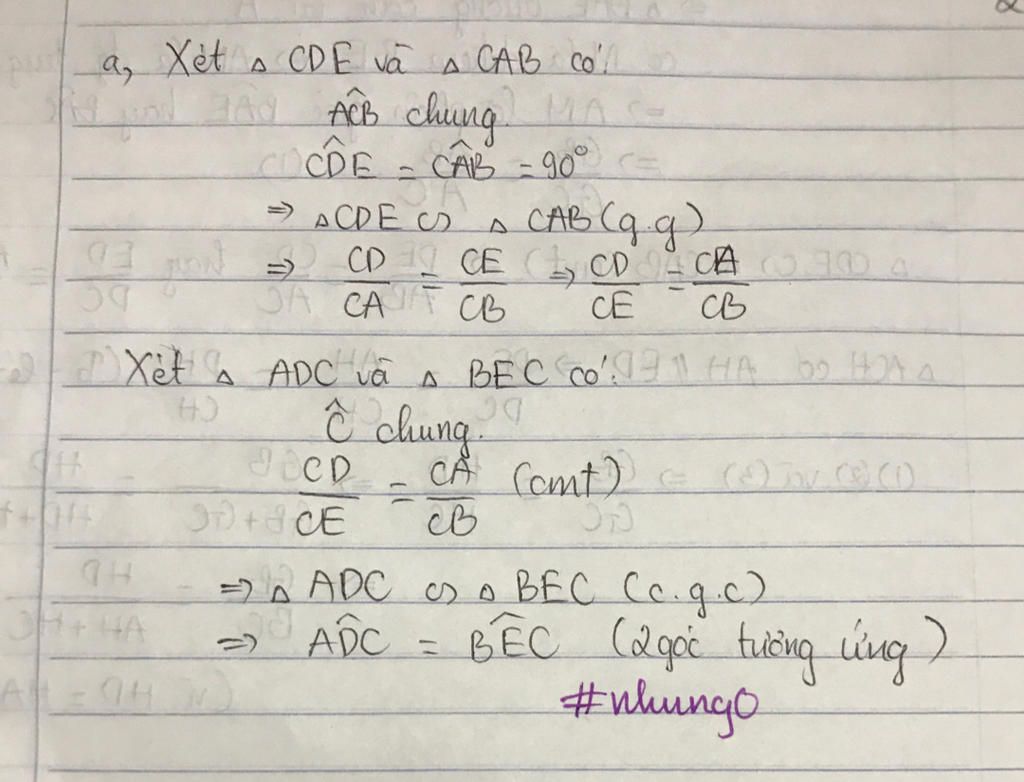 a, Xét △ CDE và △ CAB có:
AĈB chung.
CD̂E = CÂB = 90°
⇒ △CDE ∽ △ CAB (g.g)
⇒ CD/CA = CE/CB ⇒ CD/CE = CA/CB
Xét △ ADC và △ BEC có:
Ĉ chung.
CD/CE = CA/CB (cmt)
⇒ △ ADC ∽ △ BEC (c.g.c)
⇒ AD̂C = BÊC (2 góc tương ứng)
#nhung0